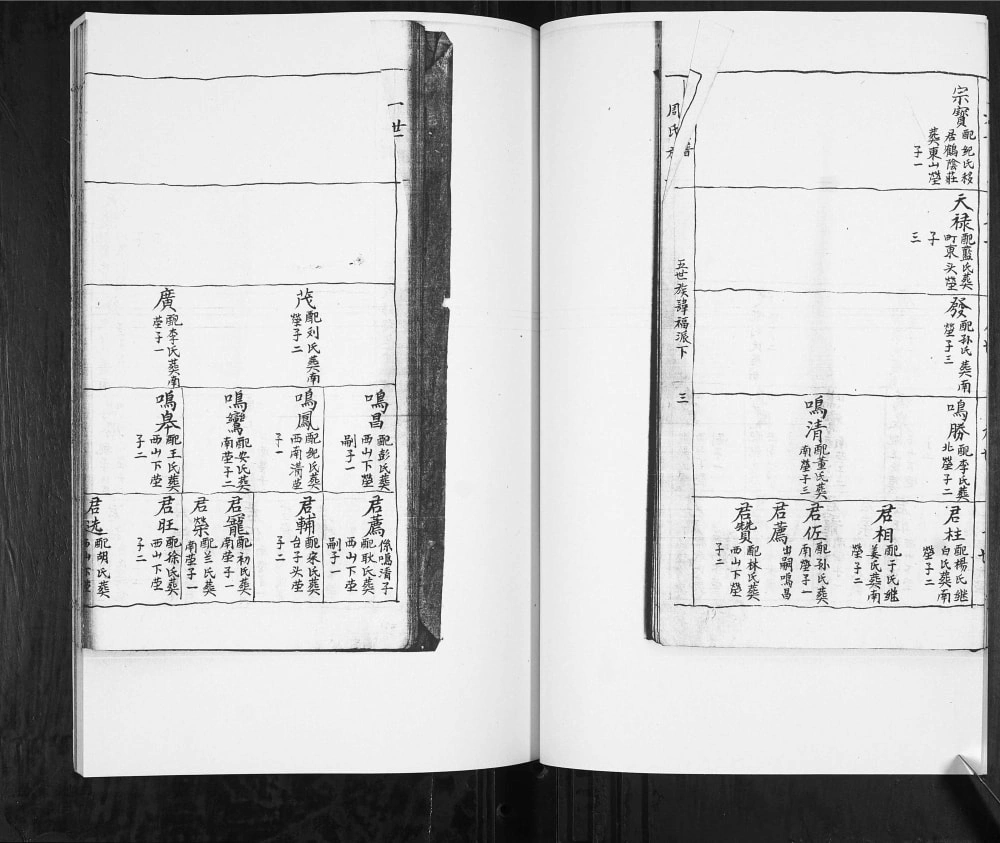 宗寶
配紀氏移
居鶴陰莊
葬東山塋
子一
天禄
配藍氏葬
町東头塋
子
三
發
配孙氏葬南
塋子三
鳴勝
配李氏葬
北塋子二
鳴清
配董氏葬
南塋子三
君柱
配楊氏继
白氏葬南
塋子二
君相
配于氏继
姜氏葬南
塋子二
君佐
配孙氏葬
南塋子一
君薦
出嗣鳴昌
君贊
配林氏葬
西山下塋
子二
周氏
五世族諱福派下
三
一世
茂
配刘氏葬南
塋子二
廣
配李氏葬南
茔子一
鳴昌
配彭氏葬
西山下塋
嗣子一
鳴鳳
配紀氏葬
西南溝茔
子一
鳴鸞
配安氏葬
南塋子二
鳴皋
配王氏葬
西山下茔
子二
君薦
係鳴清子
配耿氏葬
西山下茔
嗣子一
君輔
配宋氏葬
台子头茔
子二
君寵
配初氏葬
南茔子一
君榮
配兰氏葬
南茔子一
君旺
配徐氏葬
西山下茔
子二
君
配胡氏葬
西山下茔